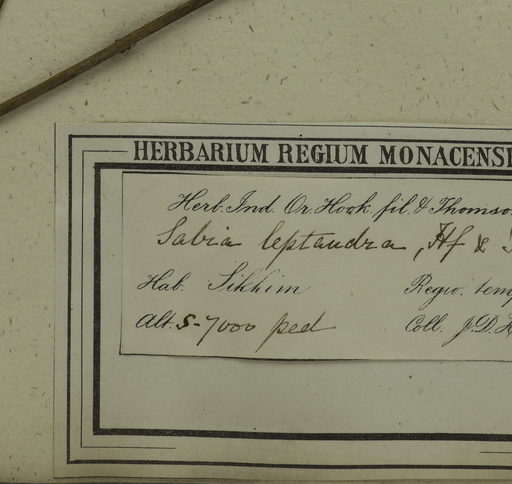 HERBARIUM REGIUM MONACENSE
Herb. Ind. Or. Hook. fil. & Thomso
Sabia leptandra, Hf &
Hab. Sikkim Regio. temp
Alt. 5-7000 ped Coll. J.D.H